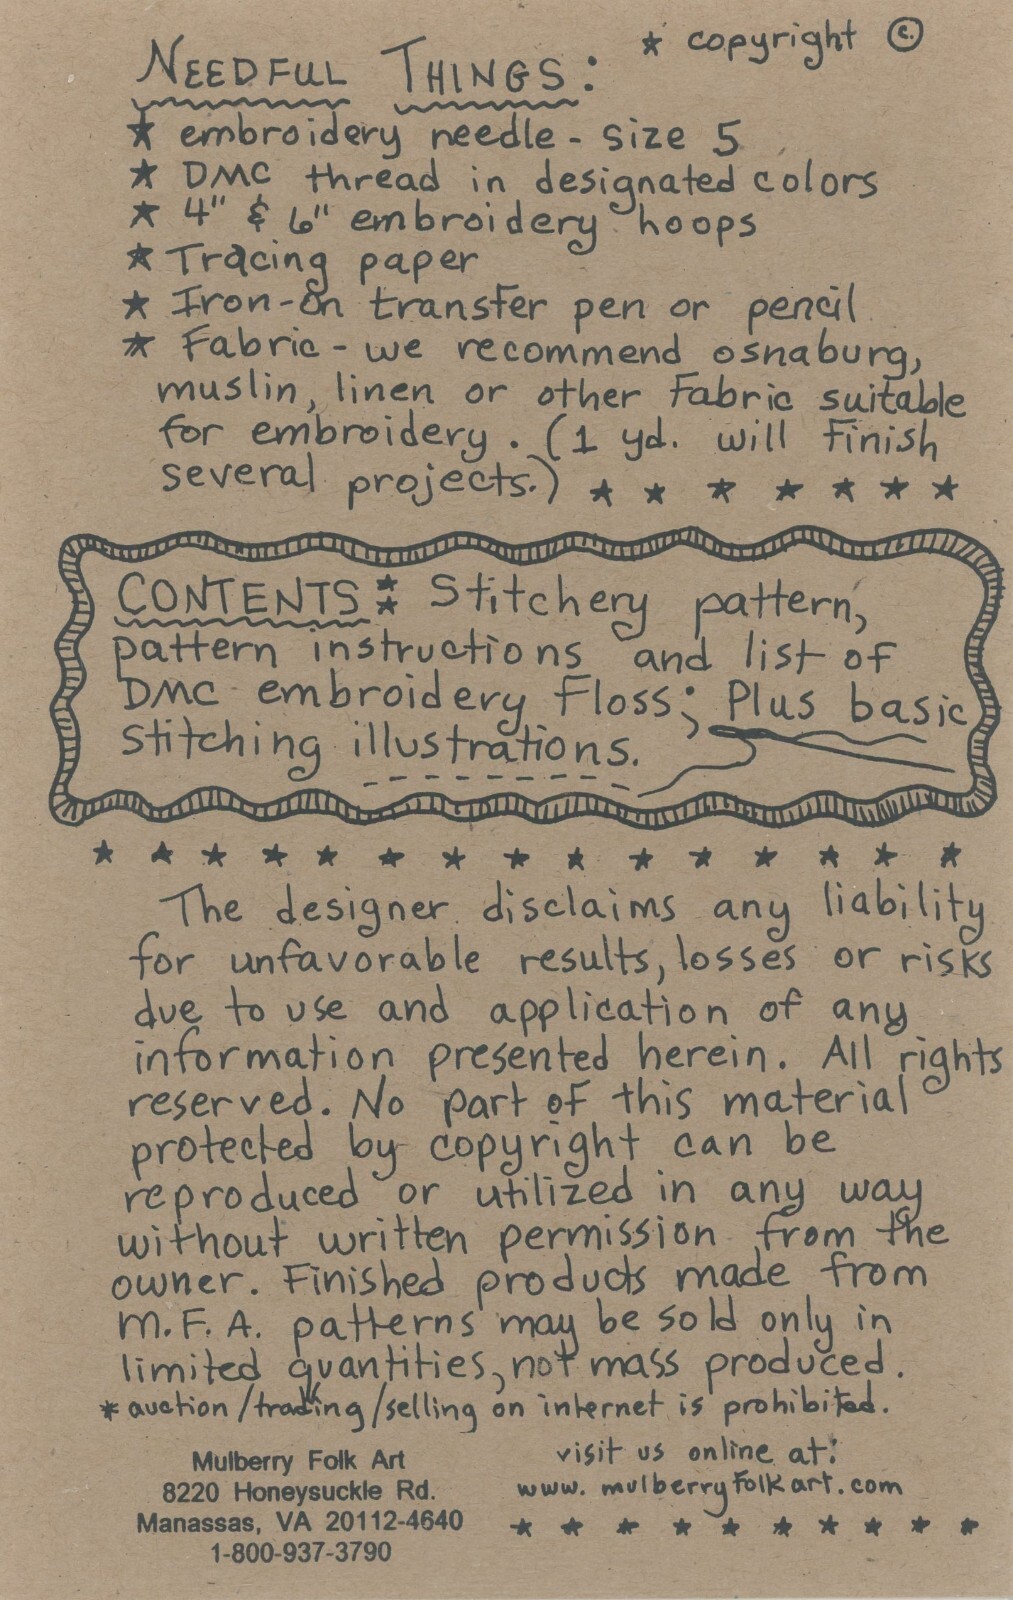 NEEDFUL THINGS: * copyright ©
* embroidery needle - size 5
* DMC thread in designated colors
* 4" & 6" embroidery hoops
* Tracing paper
* Iron-on transfer pen or pencil
* Fabric - we recommend osnaburg,
muslin, linen or other fabric suitable
for embroidery. (1 yd. will finish
several projects.) * * * * * * *
CONTENTS: Stitchery pattern,
pattern instructions and list of
DMC embroidery floss; Plus basic
stitching illustrations.
* * * * * * * * * * * * * *
The designer disclaims any liability
for unfavorable results, losses or risks
due to use and application of any
information presented herein. All rights
reserved. No part of this material
protected by copyright can be
reproduced or utilized in any way
without written permission from the
owner. Finished products made from
M.F.A. patterns may be sold only in
limited quantities, not mass produced.
* auction/trading/selling on internet is prohibited.
Mulberry Folk Art
8220 Honeysuckle Rd.
Manassas, VA 20112-4640
1-800-937-3790
visit us online at:
www.mulberryfolkart.com
* * * * * * * * *